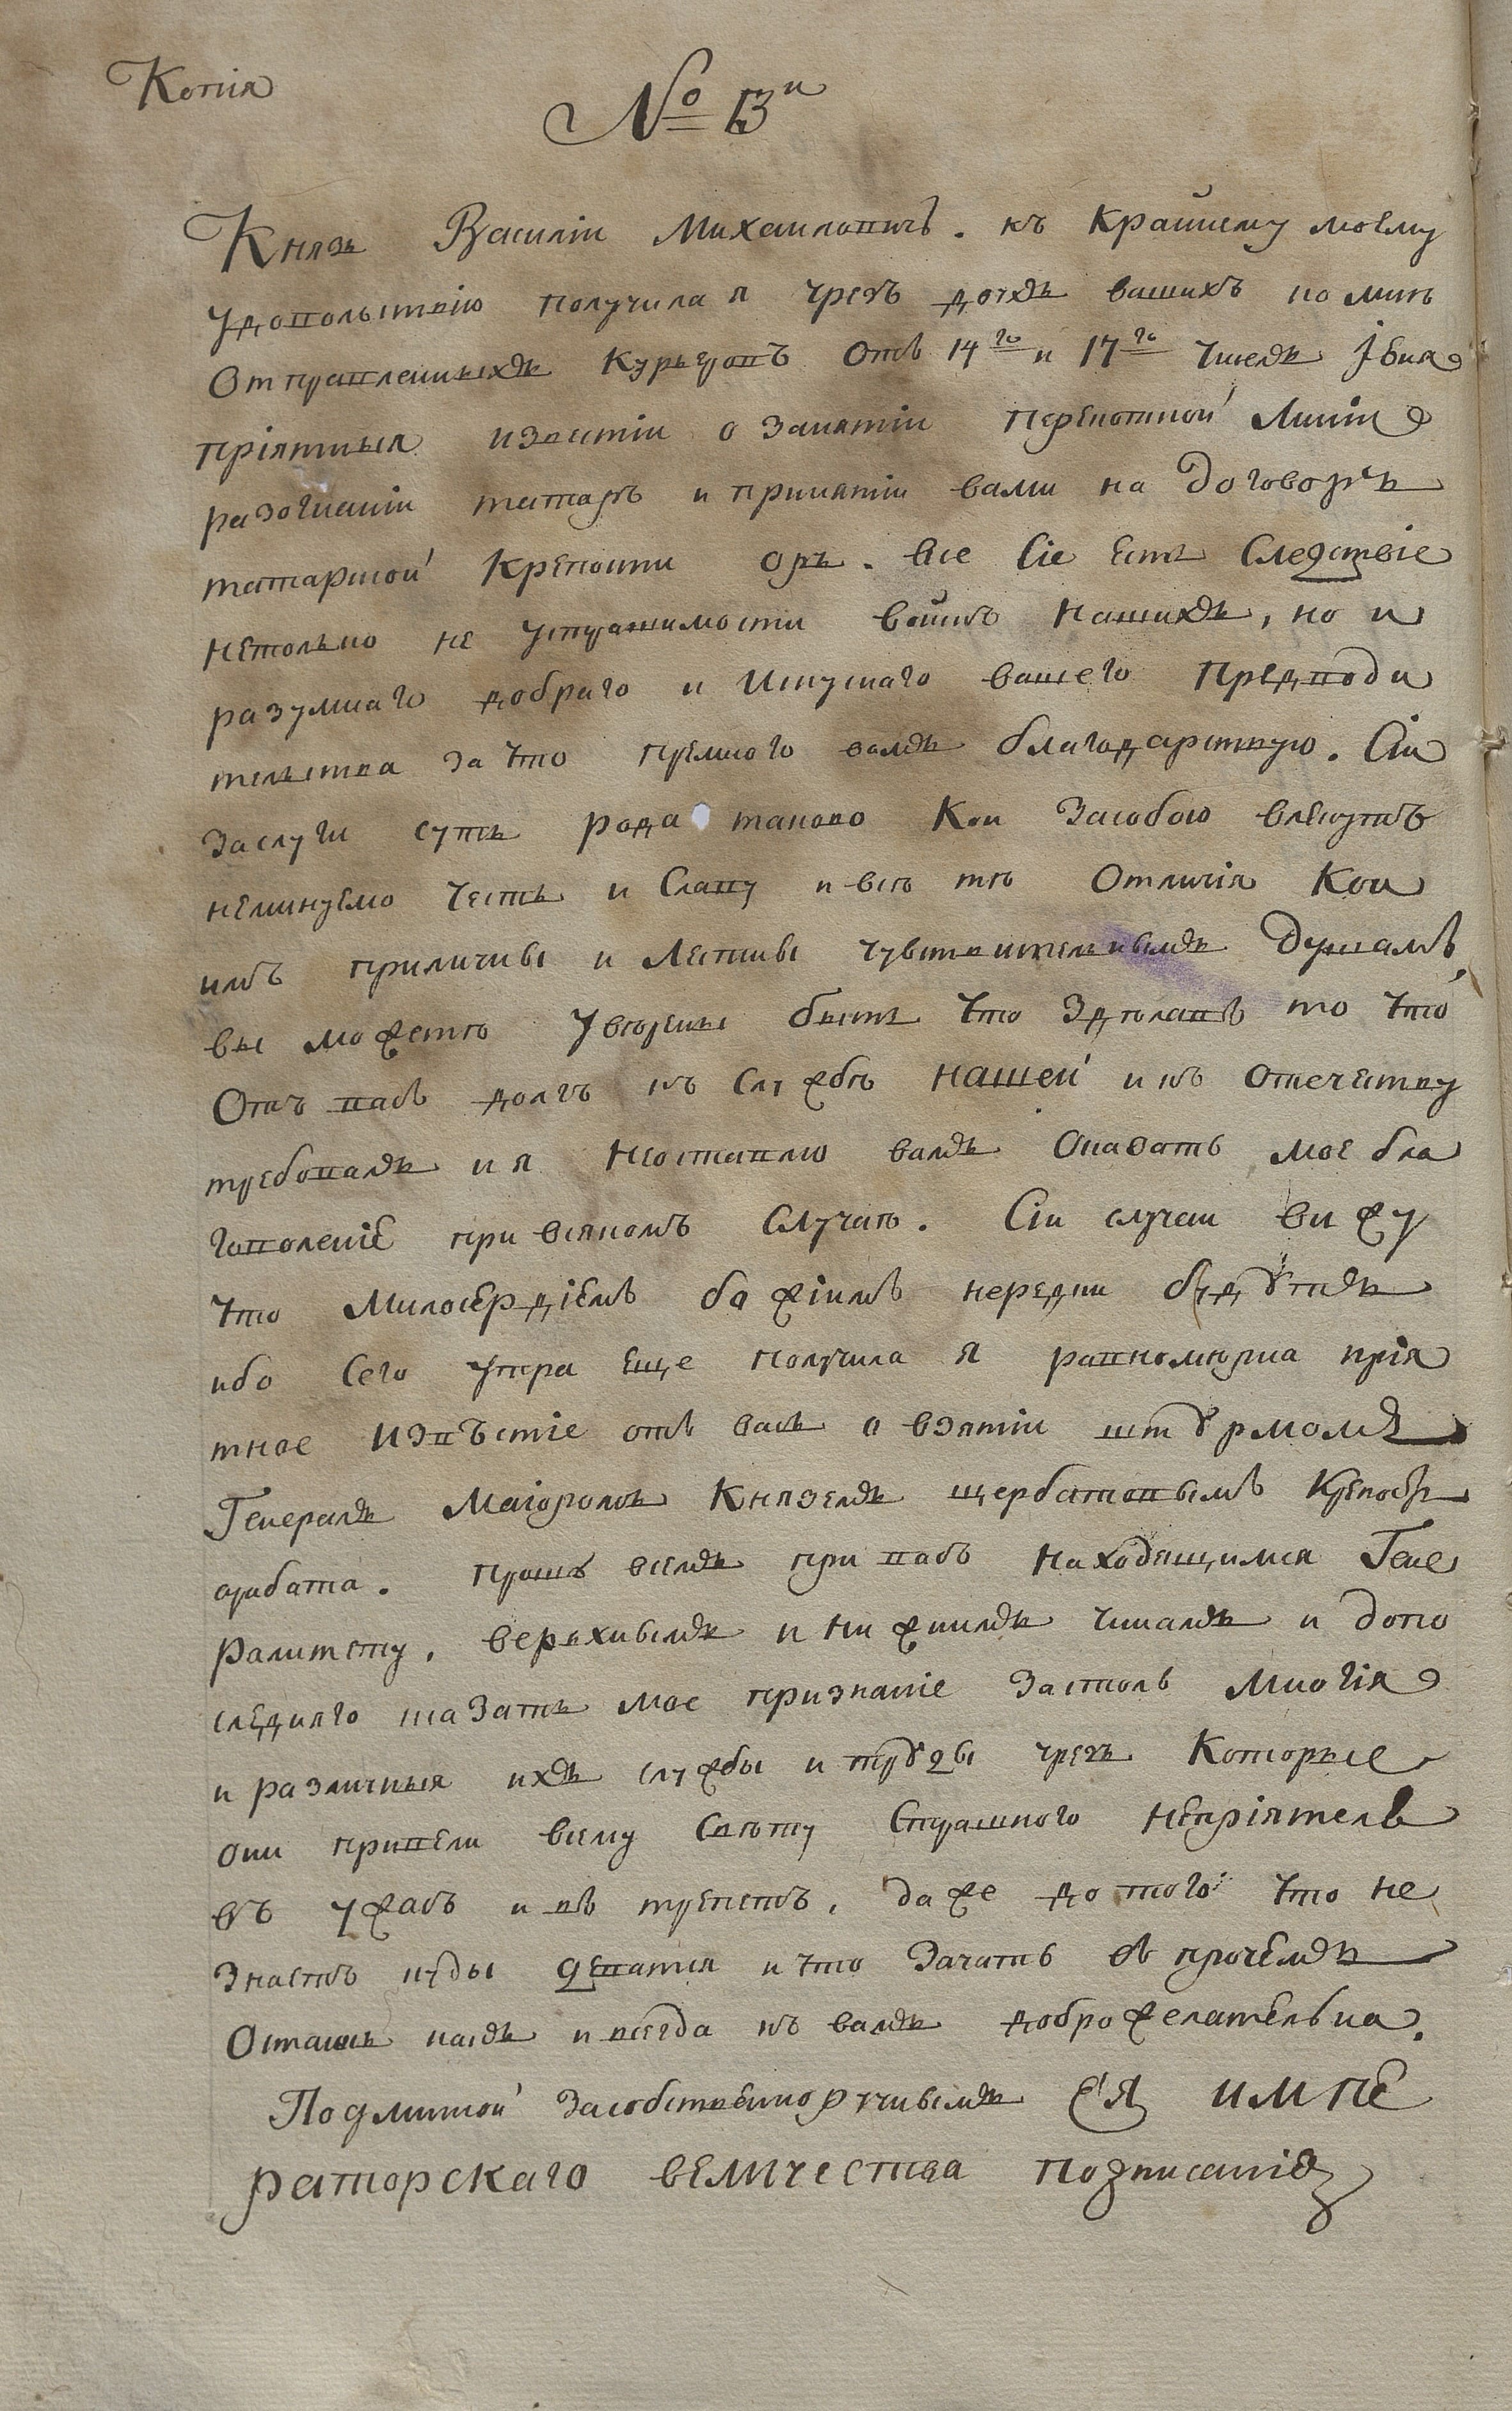 Копия
№ В<sup>и</sup>
Князь Василіи Михаиловичь. къ крайнему моему
удовольствію получила я чрезъ двухъ вашихъ ко мнѣ
отправленныхъ курьеровъ отъ 14<sup>го</sup> и 17<sup>го</sup> чиселъ іюня
пріятныя извести о занятіи перекопской линіи
разогнаніи татаръ и принятіи вами на договоръ
татарской крепости оръ. все сіе есть следствіе
нетолько не устрашимости воинъ нашихъ, но и
разумнаго добраго и искуснаго вашего предводи
тельства за что премного вамъ благодарствую. Сіи
заслуги суть рода таково кои засобою влекутъ
неминуемо честь и славу и всѣ тѣ отличія кои
имъ приличны и лестны чувствительнымъ душамъ,
вы можете уверены быть что здѣлавъ то что
отъ васъ долгъ къ службѣ нашей и къ отечеству
требовалъ и я неоставлю вамъ оказать мое бла
говоленіе при всякомъ случаѣ. Сіи случаи вижу
что милосердіемъ божіимъ нередки будутъ
ибо сего утра еще получила я равномерна прія
тное извѣстіе отъ васъ о взятіи штурмомъ
Генералъ Маіоромъ Княземъ щербатовымъ крепость
арабата. прошу всемъ при васъ находящимся Гене
ралитету, верьхнымъ и нижнимъ чинамъ и допо
следняго сказать мое признаніе застоль многія
и различныя ихъ службы и труды чрезъ которые
они привели всему свѣту страшного непріятеля
въ ужасъ и въ трепетъ, даже до того что не
знаетъ куды деватся и что зачать въ прочемъ
остаюсь какъ и всегда къ вамъ доброжелательна.
Подлинной засобственноручнымъ ЕЯ ИМПЕ
раторскаго величества подписаніе